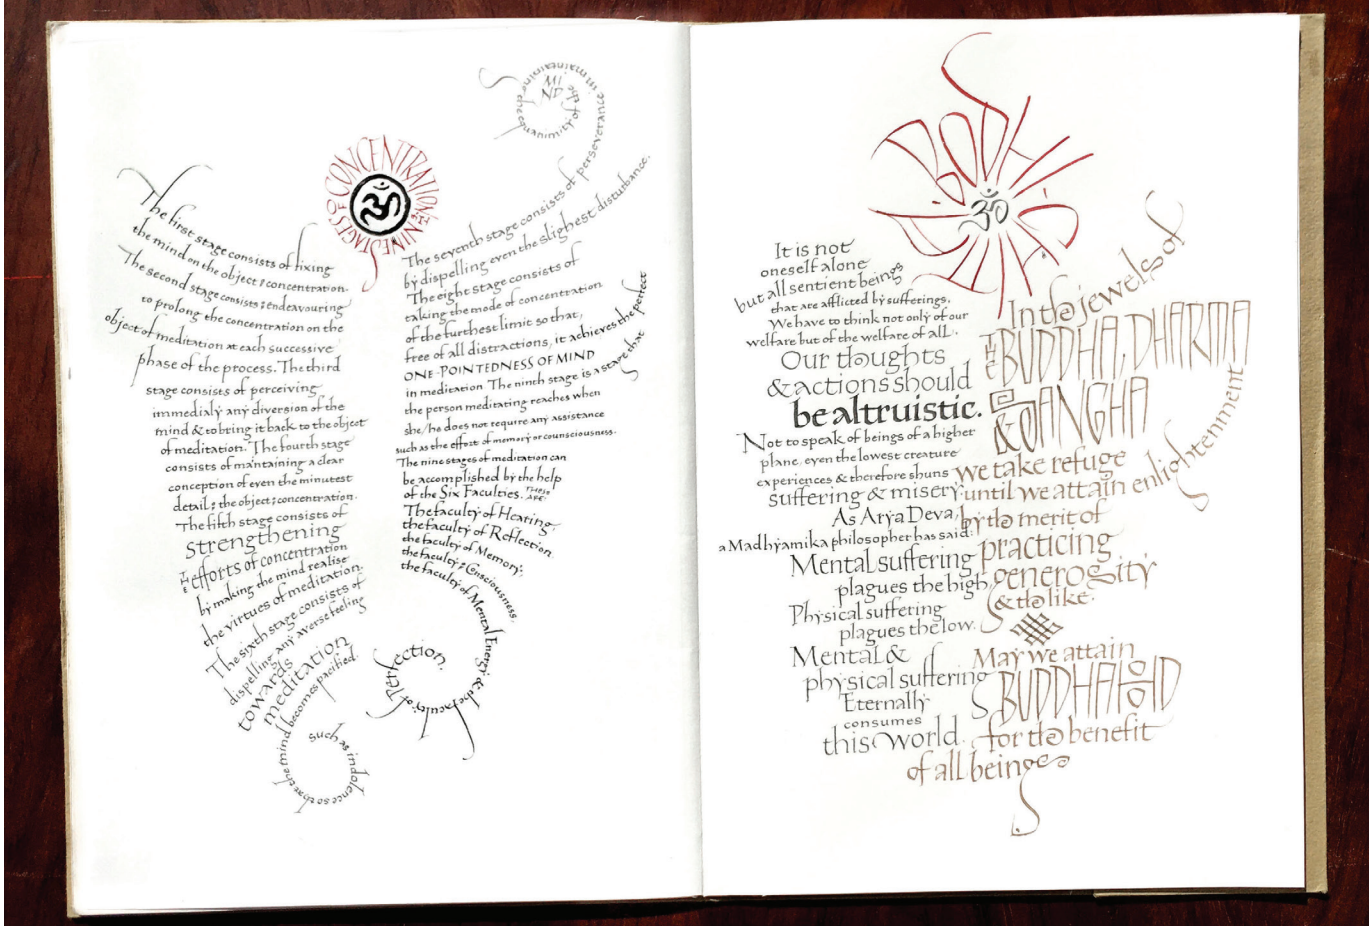 NINE STAGES OF CONCENTRATION
ॐ
The first stage consists of fixing
the mind on the object of concentration.
The second stage consists of endeavouring
to prolong the concentration on the
object of meditation at each successive
phase of the process. The third
stage consists of perceiving
immedialy any diversion of the
mind & to bring it back to the object
of meditation. The fourth stage
consists of maintaining a clear
conception of even the minutest
detail of the object of concentration.
The fifth stage consists of
strengthening
THE efforts of concentration
by making the mind realise
the virtues of meditation.
The sixth stage consists of
dispelling any averse feeling
towards
meditation
such as indolence so that the mind becomes pacified.
The seventh stage consists of perseverance in maintaining the equanimity of the
MI
ND
by dispelling even the slighest disturbance.
The eight stage consists of
taking the mode of concentration
of the furthest limit so that,
free of all distractions, it achieves the perfect
ONE-POINTEDNESS OF MIND
in meditation. The ninth stage is a stage that
the person meditating reaches when
she/he does not require any assistance
such as the effort of memory or counsciousness.
The nine stages of meditation can
be accomplished by the help
of the Six Faculties. THESE
ARE:
The faculty of Hearing,
the faculty of Reflection
the faculty of Memory,
the faculty of Consciousness,
the faculty of Mental Energy & the faculty of Perfection.
ॐ
It is not
oneself alone
but all sentient beings
that are afflicted by sufferings.
We have to think not only of our
welfare but of the welfare of all.
Our thoughts
& actions should
be altruistic.
Not to speak of beings of a higher
plane, even the lowest creature
experiences & therefore shuns
suffering & misery.
As Arya Deva,
a Madhyamika philosopher has said:
Mental suffering
plagues the high
Physical suffering
plagues the low.
Mental &
physical suffering
Eternally
consumes
this World.
In the jewels of
THE BUDDHA, DHARMA
& SANGHA
we take refuge
until we attain enlightenment
by the merit of
practicing
generosity
& the like.
May we attain
BUDDHAHOOD
for the benefit
of all beings.